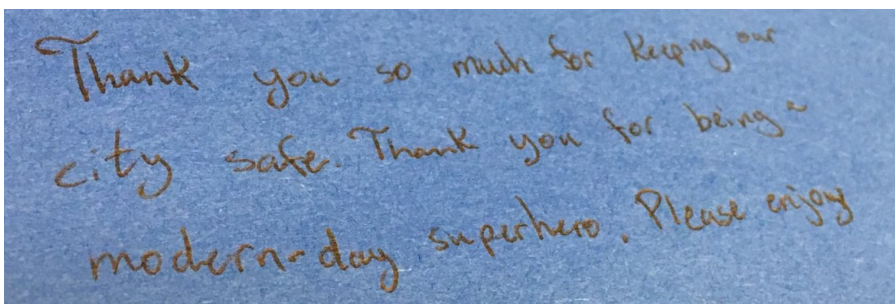 Thank you so much for keeping our
city safe. Thank you for being a
modern-day superhero. Please enjoy